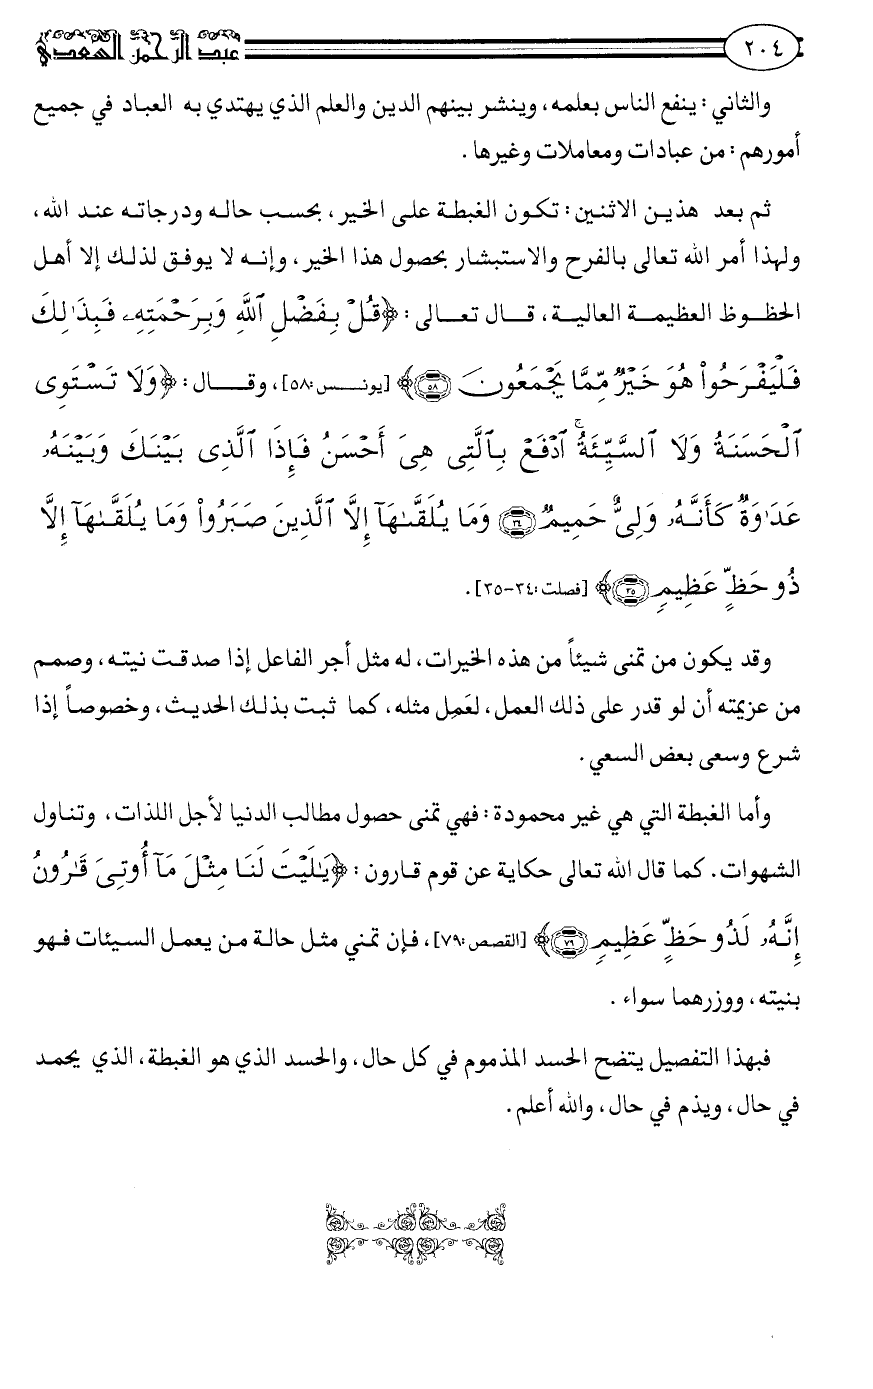 ٢٠٤
عبد الرحمن السعدي
والثاني : ينفع الناس بعلمه، وينشر بينهم الدين والعلم الذي يهتدي به العباد في جميع
أمورهم : من عبادات ومعاملات وغيرها .
ثم بعد هذين الاثنين : تكون الغبطة على الخير، بحسب حاله ودرجاته عند الله،
ولهذا أمر الله تعالى بالفرح والاستبشار بحصول هذا الخير، وإنه لا يوفق لذلك إلا أهل
الحظوظ العظيمة العالية، قال تعالى : ﴿قُلۡ بِفَضۡلِ ٱللَّهِ وَبِرَحۡمَتِهِۦ فَبِذَٰلِكَ
فَلۡيَفۡرَحُواْ هُوَ خَيۡرٞ مِّمَّا يَجۡمَعُونَ ٥٨﴾ [يونس:٥٨]، وقال : ﴿وَلَا تَسۡتَوِي
ٱلۡحَسَنَةُ وَلَا ٱلسَّيِّئَةُۚ ٱدۡفَعۡ بِٱلَّتِي هِيَ أَحۡسَنُ فَإِذَا ٱلَّذِي بَيۡنَكَ وَبَيۡنَهُۥ
عَدَٰوَةٞ كَأَنَّهُۥ وَلِيٌّ حَمِيمٞ ٣٤ وَمَا يُلَقَّىٰهَآ إِلَّا ٱلَّذِينَ صَبَرُواْ وَمَا يُلَقَّىٰهَآ إِلَّا
ذُو حَظٍّ عَظِيمٖ ٣٥﴾ [فصلت:٣٤-٣٥] .
وقد يكون من تمنى شيئاً من هذه الخيرات، له مثل أجر الفاعل إذا صدقت نيته، وصمم
من عزيمته أن لو قدر على ذلك العمل، لعَمِل مثله، كما ثبت بذلك الحديث، وخصوصاً إذا
شرع وسعى بعض السعي .
وأما الغبطة التي هي غير محمودة : فهي تمنى حصول مطالب الدنيا لأجل اللذات، وتناول
الشهوات. كما قال الله تعالى حكاية عن قوم قارون : ﴿يَٰلَيۡتَ لَنَا مِثۡلَ مَآ أُوتِيَ قَٰرُونُ
إِنَّهُۥ لَذُو حَظٍّ عَظِيمٖ ٧٩﴾ [القصص:٧٩]، فإن تمني مثل حالة من يعمل السيئات فهو
بنيته، ووزرهما سواء .
فبهذا التفصيل يتضح الحسد المذموم في كل حال، والحسد الذي هو الغبطة، الذي يحمد
في حال، ويذم في حال، والله أعلم .